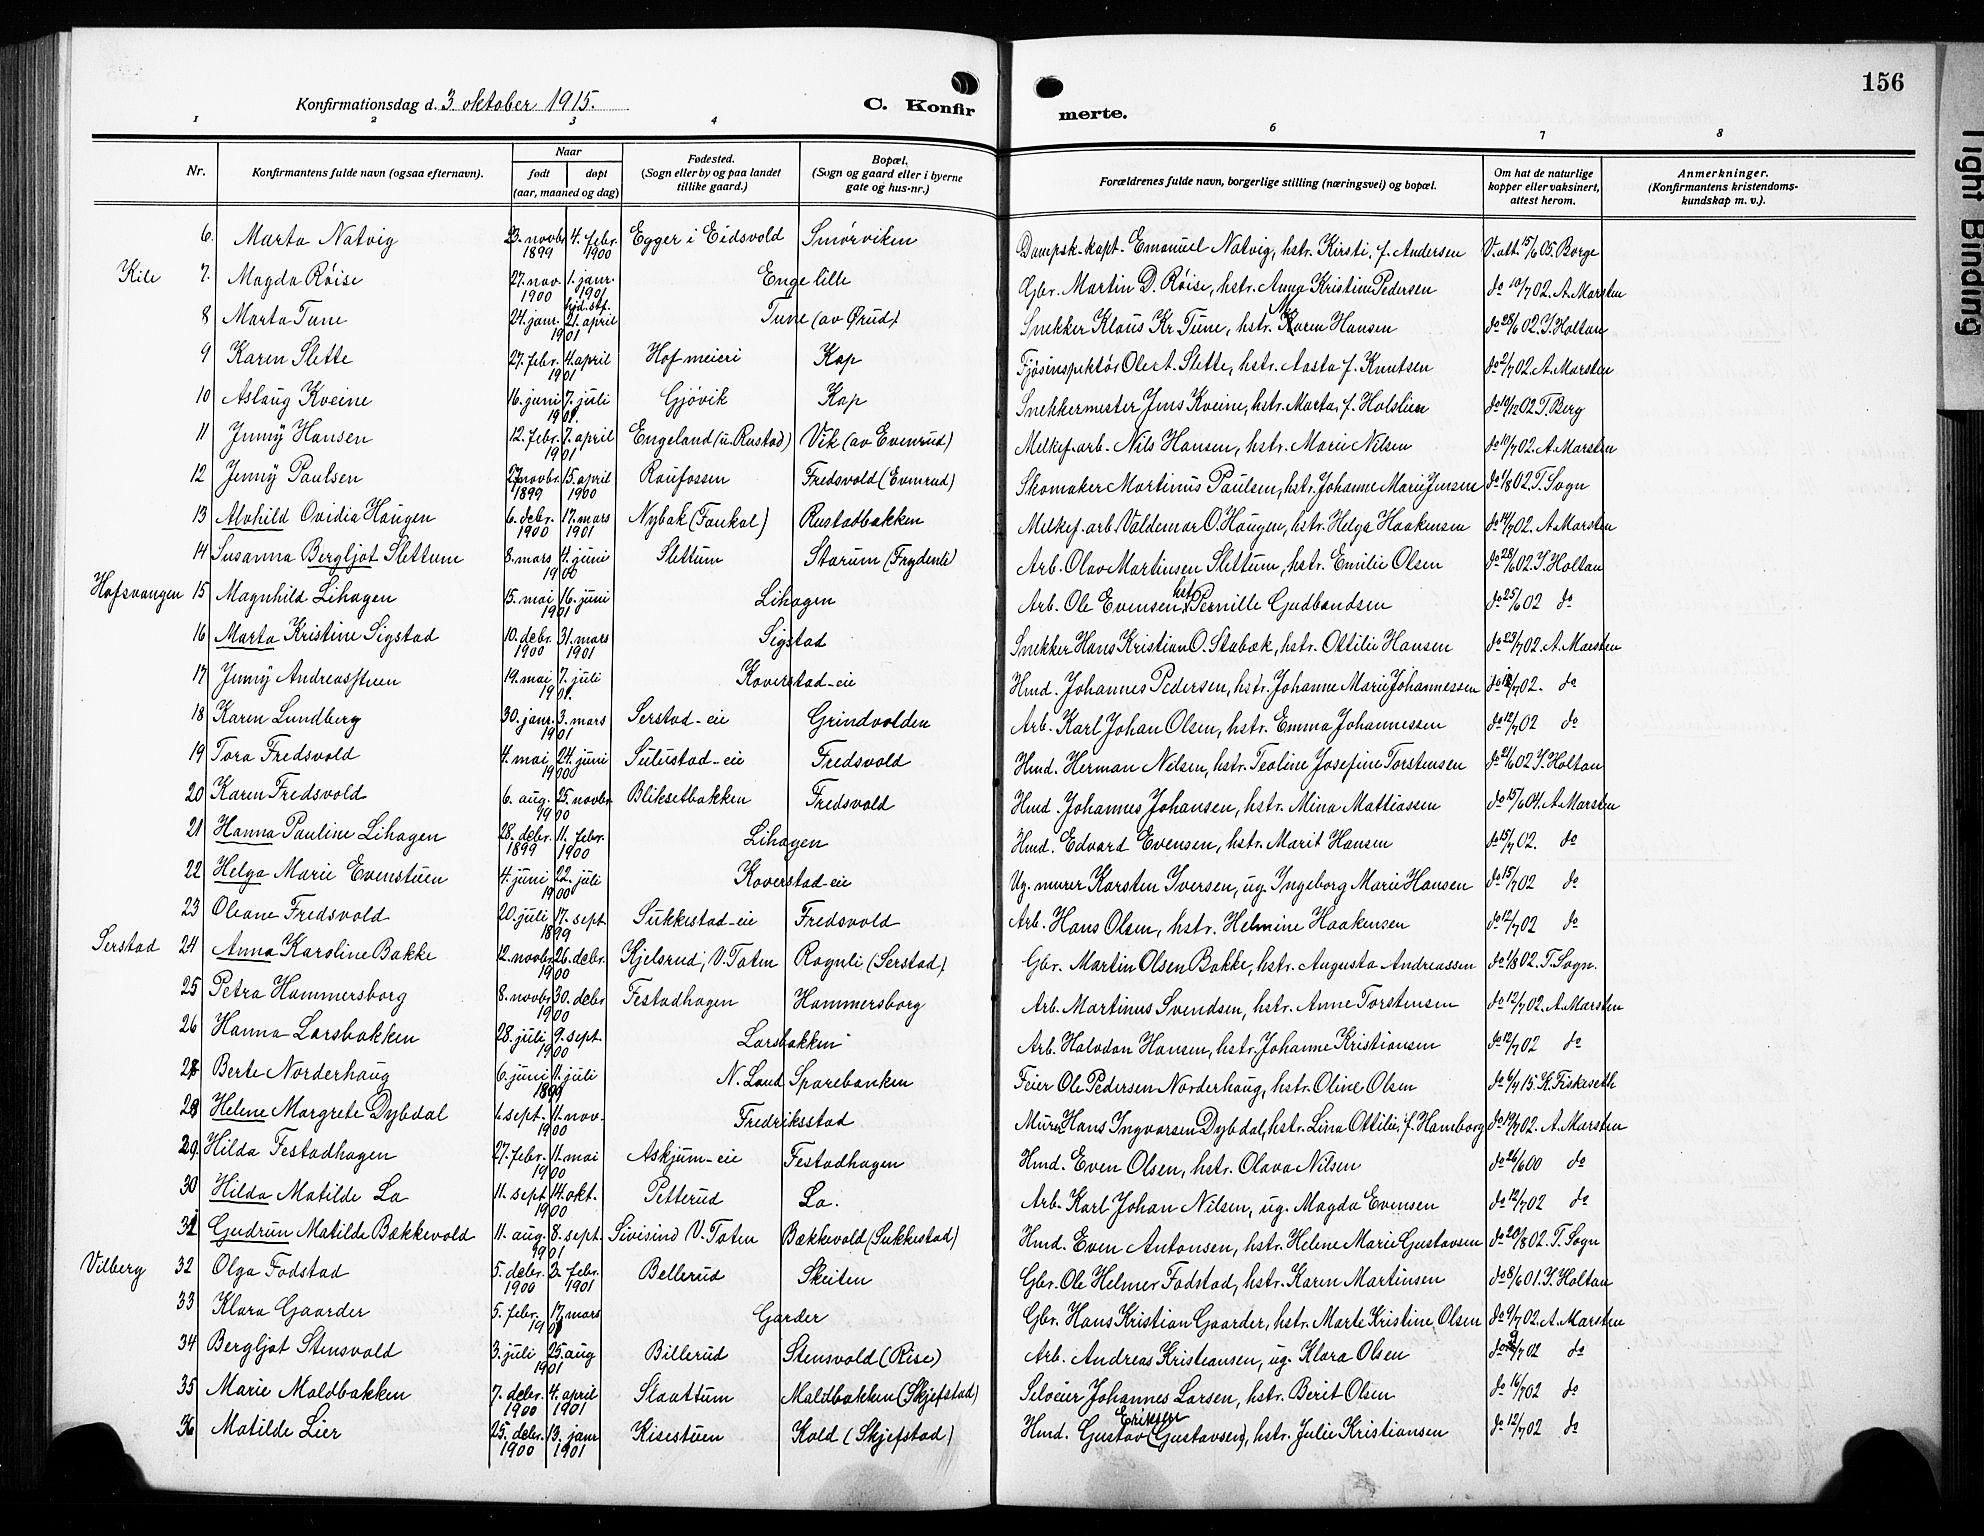 156
Konfirmationsdag d. 3 oktober 1915.
C. Konfir
merte.
1 2 3 4 6 7 8
Nr.
Konfirmantens fulde navn (ogsaa efternavn).
Naar
født døpt
(aar, maaned og dag)
Fødested.
(Sogn eller by og paa landet
tillike gaard.)
Bopæl.
(Sogn og gaard eller i byerne
gate og hus-nr.)
Forældrenes fulde navn, borgerlige stilling (næringsvei) og bopæl.
Om hat de naturlige
kopper eller vaksinert,
attest herom.
Anmerkninger.
(Konfirmantens kristendoms-
kundskap m. v.).
Tight Binding
6. Marta Natvig 23. novbr. 1899 4. febr. 1900 Egger i Eidsvold Smørviken Dampsk. kapt. Emanuel Natvig, hstr. Kirsti, f. Andersen V. att. 15/6 05. Borge
Kile 7. Magda Røise 27. nov. 1900 1. janr. 1901 Enge lille Gbr. Martin D. Røise, hstr. Anna Kristine Pedersen do 10/7 02. A. Marsten
8 Marta Tune 24. jan. hjd. stf. 21. april 1901 Tune (av Ørud) Snekker Klaus Kr. Tune, hstr. Karen Hansen do 28/6 02. S. Holtan
9 Karen Slette 27. febr. 4. april 1901 Hof meieri Kap Fjøsinspektør Ole A. Slette, hstr. Aasta f. Knutsen do 2/7 02. A. Marsten
10 Aslaug Kveine 16. juni 7. juli 1901 Gjøvik Kap Snekkermester Jens Kveine, hstr. Marta, f. Holslien do 19/12 02 T. Berg
11 Jenny Hansen 12. febr. 7. april 1901 Engeland (u. Rustad) Vik (av Evenrud) Melkef. arb. Nils Hansen, hstr. Marie Nilsen do 10/7 02. A. Marsten
12 Jenny Paulsen 27 novbr. 1899 15. april 1900 Raufossen Fredsvold (Evenrud) Skomaker Martinus Paulsen, hstr. Johanne Marie Jensen do 1/8 02. T. Sogn
13 Alvhild Ovidia Haugen 6. debr. 1900 17. mars 1901 Nybak (Faukal) Rustadbakken Melkef. arb. Valdemar O. Haugen, hstr. Helga Haakensen do 14/7 02. A. Marsten
14 Susanna Bergljot Slettum 8. mars 4. juni 1900 Slettum Starum (Frydenli) Arb. Olav Martinsen Slettum, hstr. Emilie Olsen do 28/6 02. S. Holtan
Hofsvangen 15 Magnhild Lihagen 15. mai 16. juni 1901 Lihagen Arb. Ole Evensen, hstr. Pernille Gudbandsen do 25/6 02 do
16 Marta Kristine Sigstad 10. debr. 1900 31. mars 1901 Sigstad Snekker Hans Kristian O. Stabæk, hstr. Ottilie Hansen do 23/7 02. A. Marsten
17 Jenny Andreasstuen 19. mai 7. juli 1901. Koverstad-eie Hmd. Johannes Pedersen, hstr. Johanne Marie Johannessen do 12/7 02. do
18 Karen Lundberg 30. janr. 3. mars 1901 Serstad-eie Grindvolden Arb. Karl Johan Olsen, hstr. Emma Johannessen do 12/7 02 do
19 Tora Fredsvold 4. mai 24. juni 1900 Sulustad-eie Fredsvold Hmd. Herman Nilsen, hstr. Teoline Josefine Torstensen do 21/6 02 S. Holtan
20 Karen Fredsvold 6. aug. 25. novbr. 1900 Bliksetbakken Fredsvold Hmd. Johannes Johansen, hstr. Mina Mattiassen do 15/6 04. A. Marsten
21 Hanna Pauline Lihagen 28. debr. 1899 11. febr. 1900 Lihagen Hmd. Edvard Evensen, hstr. Marit Hansen do 15/7 02. do
22 Helga Marie Evenstuen 4. juni 22. juli 1900 Koverstad-eie Ug. murer Karsten Iversen, ug. Ingeborg Marie Hansen do 15/7 02 do
23 Oleane Fredsvold 20. juli 17. sept 1899 Sukkestad-eie Fredsvold Arb. Hans Olsen, hstr. Helmine Haakensen do 12/7 02 do
Serstad 24 Anna Karoline Bakke 12. novbr. 26. debr. 1900 Kjelsrud, V. Toten Rognli (Serstad) Gbr. Martin Olsen Bakke, hstr. Augusta Andreassen do 1/8 02. T. Sogn.
25 Petra Hammersborg 8. novbr. 30. debr 1900 Festadhagen Hammersborg Arb. Martinus Svendsen, hstr. Anne Torstensen do 12/7 02. A. Marsten
26 Hanna Larsbakken 28. juli 9. sept. 1900 Larsbakken Arb. Halvdan Hansen, hstr. Johanne Kristiansen do 12/7 02 do
27 Berte Norderhaug 6. juni 11. juli 1899 N. Land Sparebanken Feier Ole Pedersen Norderhaug, hstr. Oline Olsen do 6/4 15. K. Fiskeseth
28 Helene Margrete Dybdal 6. sept. 11. nov. 1900 Fredriksstad Murer Hans Ingvarsen Dybdal, hstr. Lina Ottilie, f. Hamborg do 19/7 02. A. Marsten
29. Hilda Festadhagen 27. febr. 11. mai 1900 Askjum-eie Festadhagen Hmd. Even Olsen, hstr. Olava Nilsen do 26/6 00 do
30 Hilda Matilde Lo 11. sept 14. okt. 1900 Petterud Lo. Arb. Karl Johan Nilsen, ug. Magda Evensen do 12/7 02 do
31 Gudrun Matilde Bækkevold 11. aug. 8. sept. 1901 Sivisind V. Toten Bækkevold (Sukkestad) Hmd. Even Antonsen, hstr. Helene Marie Gustavsen do 20/8 02. T. Sogn
Vilberg 32 Olga Fodstad 5. debr. 1900 3. febr. 1901 Bellerud Skeiten Gbr. Ole Helmer Fodstad, hstr. Karen Martinsen do 8/6 01. S. Holtan
33 Klara Gaarder 5. febr. 17. mars 1901 Garder Gbr. Hans Kristian Gaarder, hstr. Marte Kristine Olsen do 9/7 02. A. Marsten
34 Bergljot Stensvold 3. juli 25. aug 1901 Billerud Stensvold (Rise) Arb. Andreas Kristiansen, ug. Klara Olsen do 9/7 02 do
35 Marie Moldbakken 7. debr. 1900 4. april 1901 Staattum Moldbakken (Skjefstad) Selveier Johannes Larsen, hstr. Berit Olsen do 16/7 02 do
36 Matilde Lier 25. debr. 1900 13. janr 1901 Kisestuen Kold (Skjefstad) Hmd. Gustav Eriksen (Gustavsen), hstr. Julie Kristiansen do 12/7 02 do